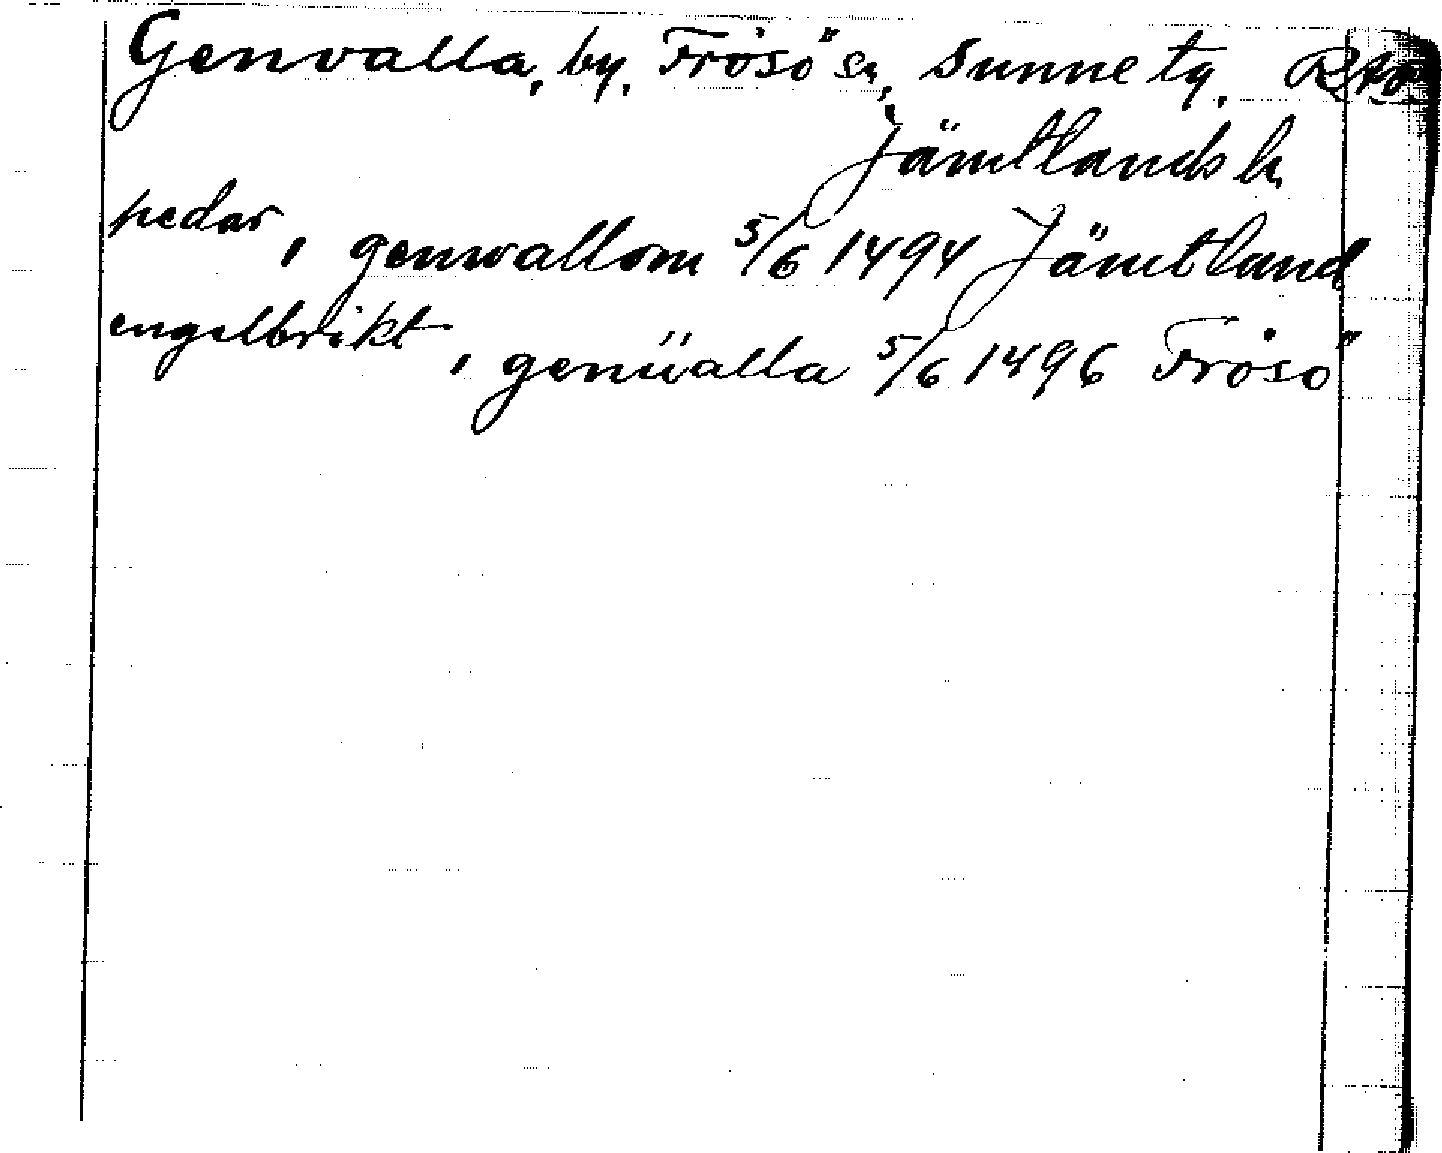 Genvalla, by, Frösö sn, Sunne tg.
Jämtlands l.
pedar, i genwallom 5/6 1494 Jämtland
engelbrikt, i genüalla 5/6 1496 Frösö